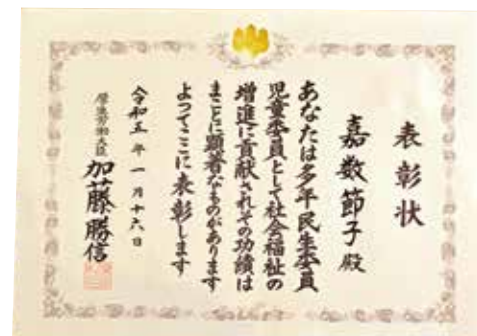 表彰状
嘉数節子殿
あなたは多年民生委員
児童委員として社会福祉の
増進に貢献されその功績は
まことに顕著なものがあります
よってここに表彰します
令和五年一月十六日
厚生労働大臣 加藤勝信